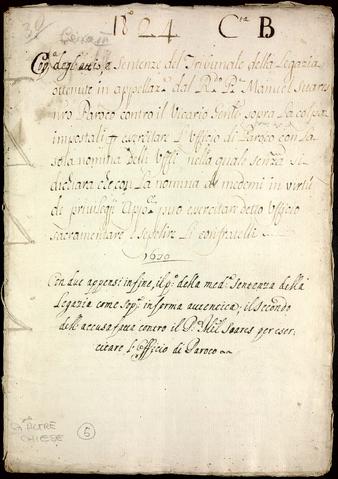 39
1824 C.ra B
Cop.a degli atti, e Sentenze del Tribunale della Legazia
ottenute in appellaz.e dal R.do P.re Manoel Suares
n'ro Paroco contro il Vicario Gen.le sopra la colpa
impostali p esercitare l'Uffizio di Paroco con la
sola nomina delli Uffi nella quale senza si
dichiara che con la nomina de medemi in virtù
di privileggi App.ci puo esercitar detto Uffizio
sacramentare e sepelire li confratelli
1650
Con due appensi in fine, il p.o della med.a Sentenza della
Legazia come sop.a in forma autentica; il secondo
dell'accusa fatta contro il P. Mel. Soares per eser-
citare l'Officio di Paroco
DA ALTRE
CHIESE
5